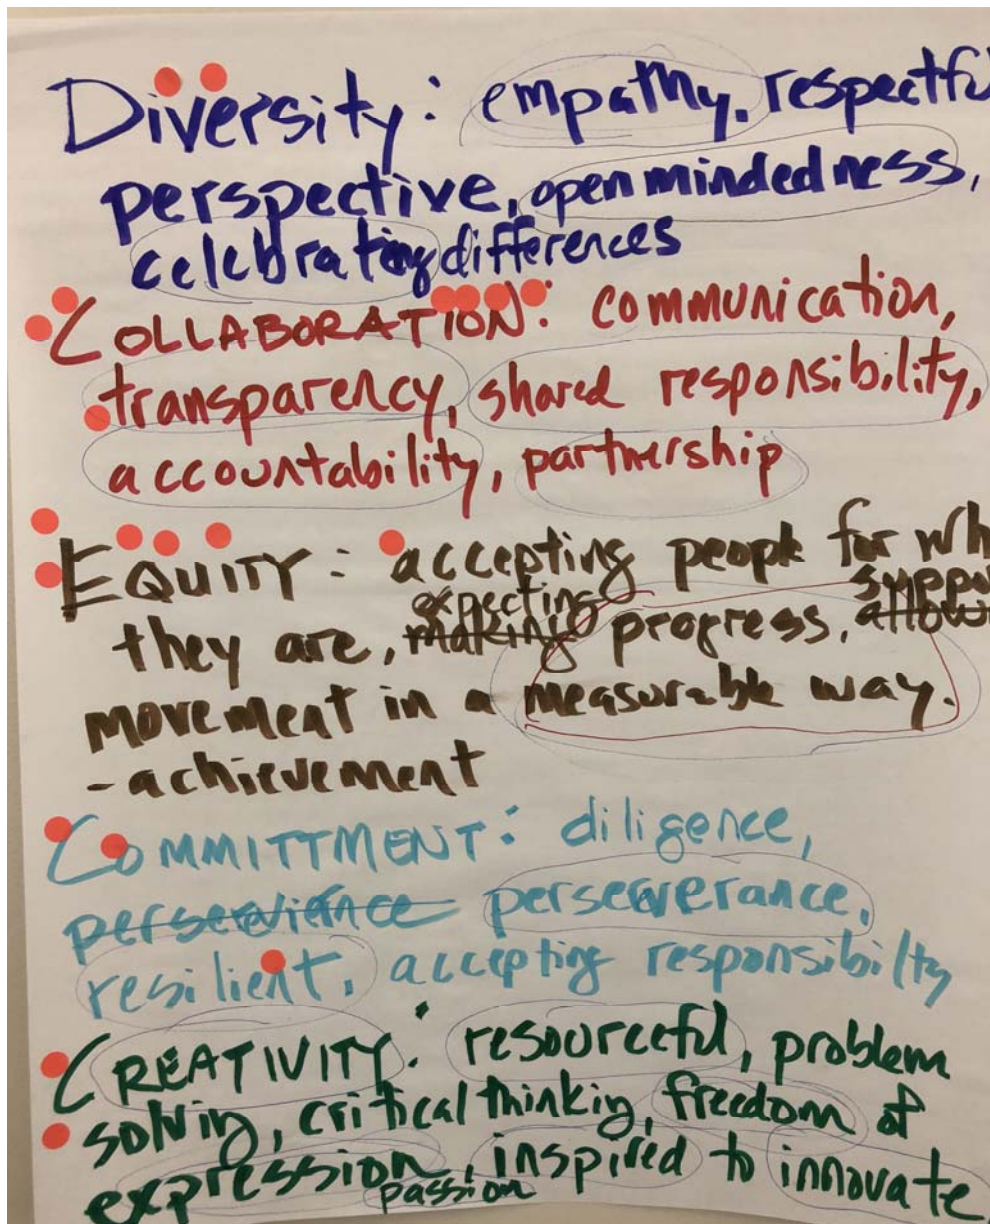 Diversity: empathy, respectful
perspective, open mindedness,
celebrating differences
COLLABORATION: communication,
transparency, shared responsibility,
accountability, partnership
EQUITY: accepting people for wh
expecting suppo
they are, making progress, allow
movement in a measurable way.
- achievement
COMMITTMENT: diligence,
perseverance,
resilient, accepting responsibilty
CREATIVITY: resourceful, problem
solving, critical thinking, freedom of
expression, inspired to innovate
passion